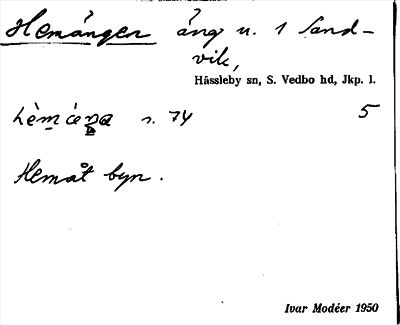 Hemängen äng u. 1 Sand-
vik,
Hässleby sn, S. Vedbo hd, Jkp. l.
s. 74 5
Hemåt byn.
Ivar Modéer 1950